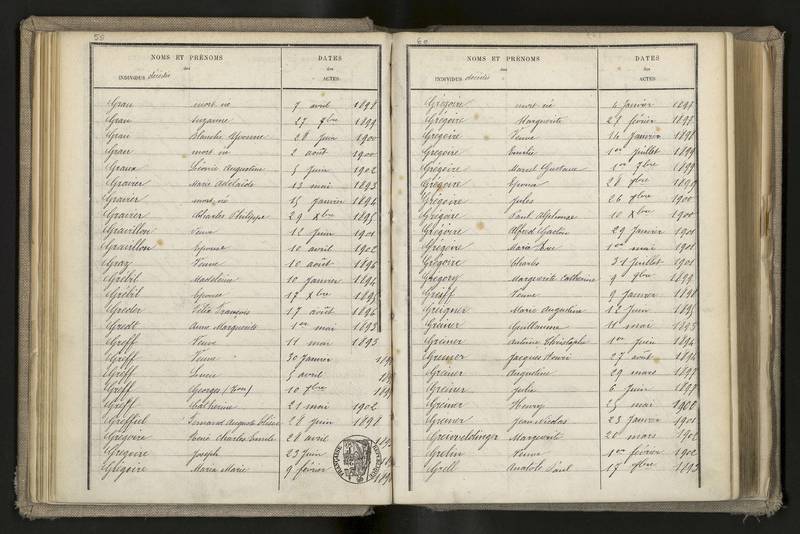 58
NOMS ET PRÉNOMS
des
INDIVIDUS décédés
DATES
des
ACTES
Grau mort né 7 avril 1898
Grau Suzanne 27 7bre 1899
Grau Blanche Yvonne 28 Juin 1900
Grau mort né 2 août 1900
Graux Léonie Augustine 5 Juin 1902
Gravier Marie Adélaïde 13 mai 1893
Gravier mort né 15 Janvier 1894
Gravier Charles Philippe 29 Xbre 1895
Gravillon Veuve 12 Juin 1901
Gravillon Epouse 10 avril 1902
Gray Veuve 10 août 1896
Grébil Madeleine 10 Janvier 1894
Grébil Epouse 17 Xbre 1895
Greder Félix François 17 août 1894
Gredt Anne Marguerite 1er mai 1893
Greff Veuve 11 mai 1893
Greff Veuve 30 Janvier
Greff 5 avril
Greff Georges 10 7bre
Greff Catherine 21 mai 1902
Greffiel Fernand Auguste 28 Juin 1898
Grégoire René Charles Emile 28 avril
Grégoire Joseph 23 Juin
Grégoire Maria Marie 9 février
60
NOMS ET PRÉNOMS
des
INDIVIDUS décédés
DATES
des
ACTES
Grégoire mort né 4 Janvier 1897
Grégoire Marguerite 28 février 1897
Grégoire Veuve 14 Janvier 1898
Grégoire Emilie 1er Juillet 1899
Grégoire Marcel Gustave 1er 7bre 1899
Grégoire Epouse 28 7bre 1899
Grégoire Jules 26 7bre 1900
Grégoire Paul Alphonse 10 Xbre 1900
Grégoire Alfred Gaston 29 Janvier 1901
Grégoire Marie 1er mai 1901
Grégoire Charles 31 Juillet 1901
Grégory Marguerite Catherine 9 9bre 1899
Greiff Veuve 9 Janvier 1898
Greigner Marie Augustine 12 Juin 1895
Greiner Guillaume 11 mai 1893
Greiner Antoine Christophe 1er Juin 1894
Greiner Jacques Henri 27 août 1894
Greiner Augustine 29 mars 1897
Greiner Julie 6 Juin 1897
Greiner Henry 25 mai 1900
Greiner Jean Nicolas 23 Janvier 1901
Greiveldinger Marguerite 20 mars 1902
Grelin Veuve 1er février 1902
Grell Anatole Paul 17 7bre 1893